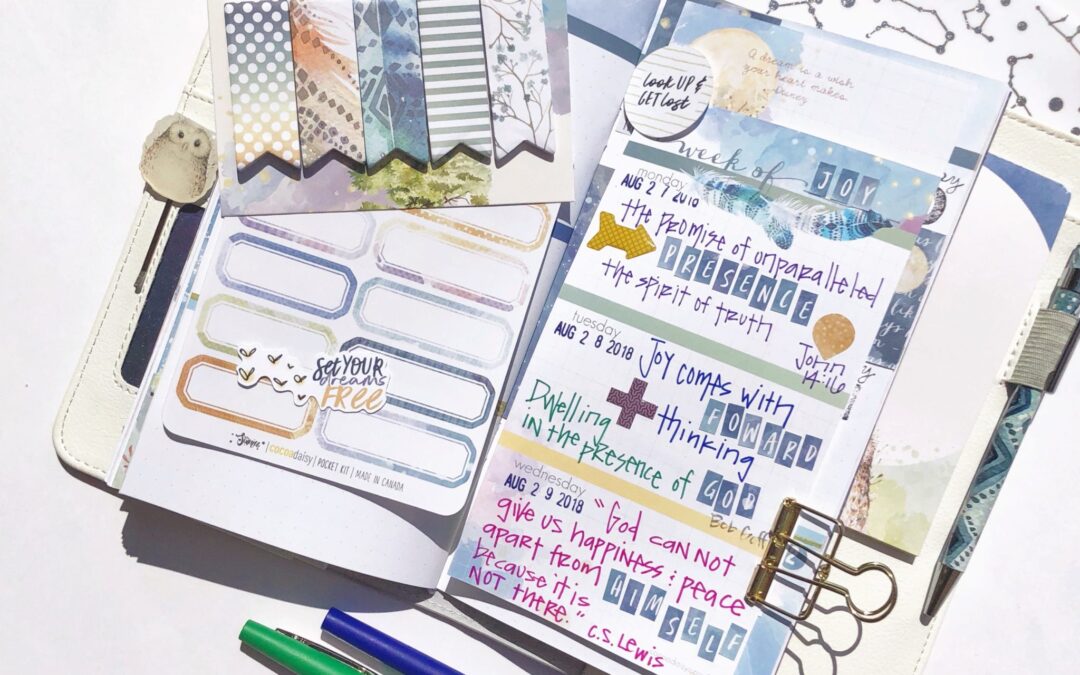 SET YOUR
dreams
FREE
cocoadaisy | POCKET KIT | MADE IN CANADA
A dream is a wish
your heart makes.
Disney
LOOK UP &
GET Lost
week of JOY
monday
AUG 2 7 2018
the promise of unparalleled
PRESENCE
the spirit of truth
John
14:16
tuesday
AUG 2 8 2018
Joy comes with
FOWARD
thinking
Dwelling
in the presence of GOD
Bob Goff
wednesday
AUG 2 9 2018
"God can not
give us happiness & peace
apart from HIMSELF
because it is
NOT there."
C.S. Lewis